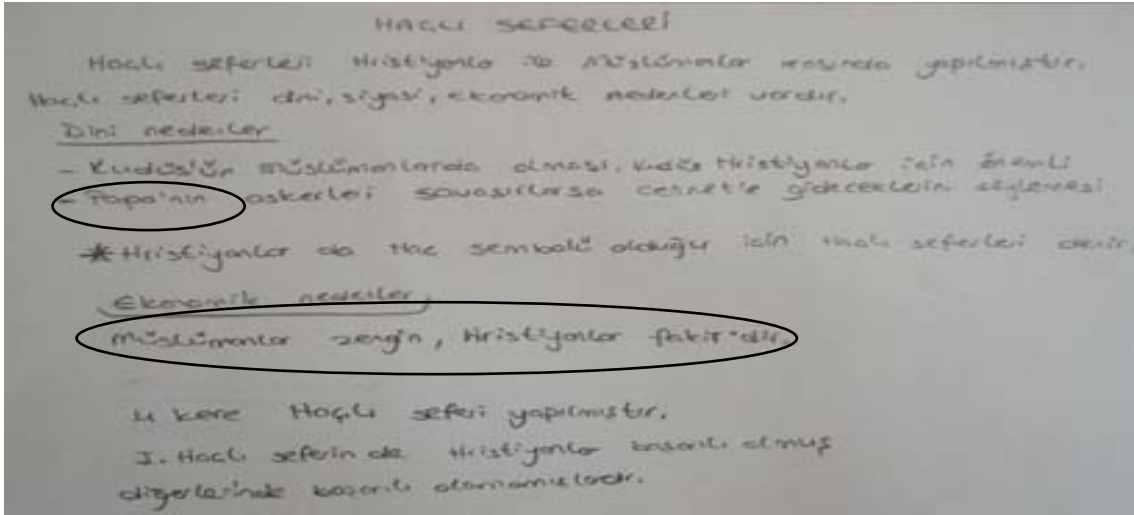 HAÇLI SEFERLERİ
Haçlı seferleri Hristiyanla ile Müslümanlar arasında yapılmıştır.
Haçlı seferleri dini, siyasi, ekonomik nedenleri vardır.
Dini nedenler
- Kudüs'ün müslümanlarda olması, Kudüs Hristiyanlar için önemli
- Papa'nın askerleri savaşırlarsa cennet'e gideceklerini söylemesi
* Hristiyanlar da Haç sembolü olduğu için Haçlı seferleri denir.
Ekonomik nedenler
Müslümanlar zengin, Hristiyanlar fakir'dir.
4 kere Haçlı seferi yapılmıştır.
I. Haçlı seferin de Hristiyanlar başarılı olmuş
diğerlerinde başarılı olamamışlardır.